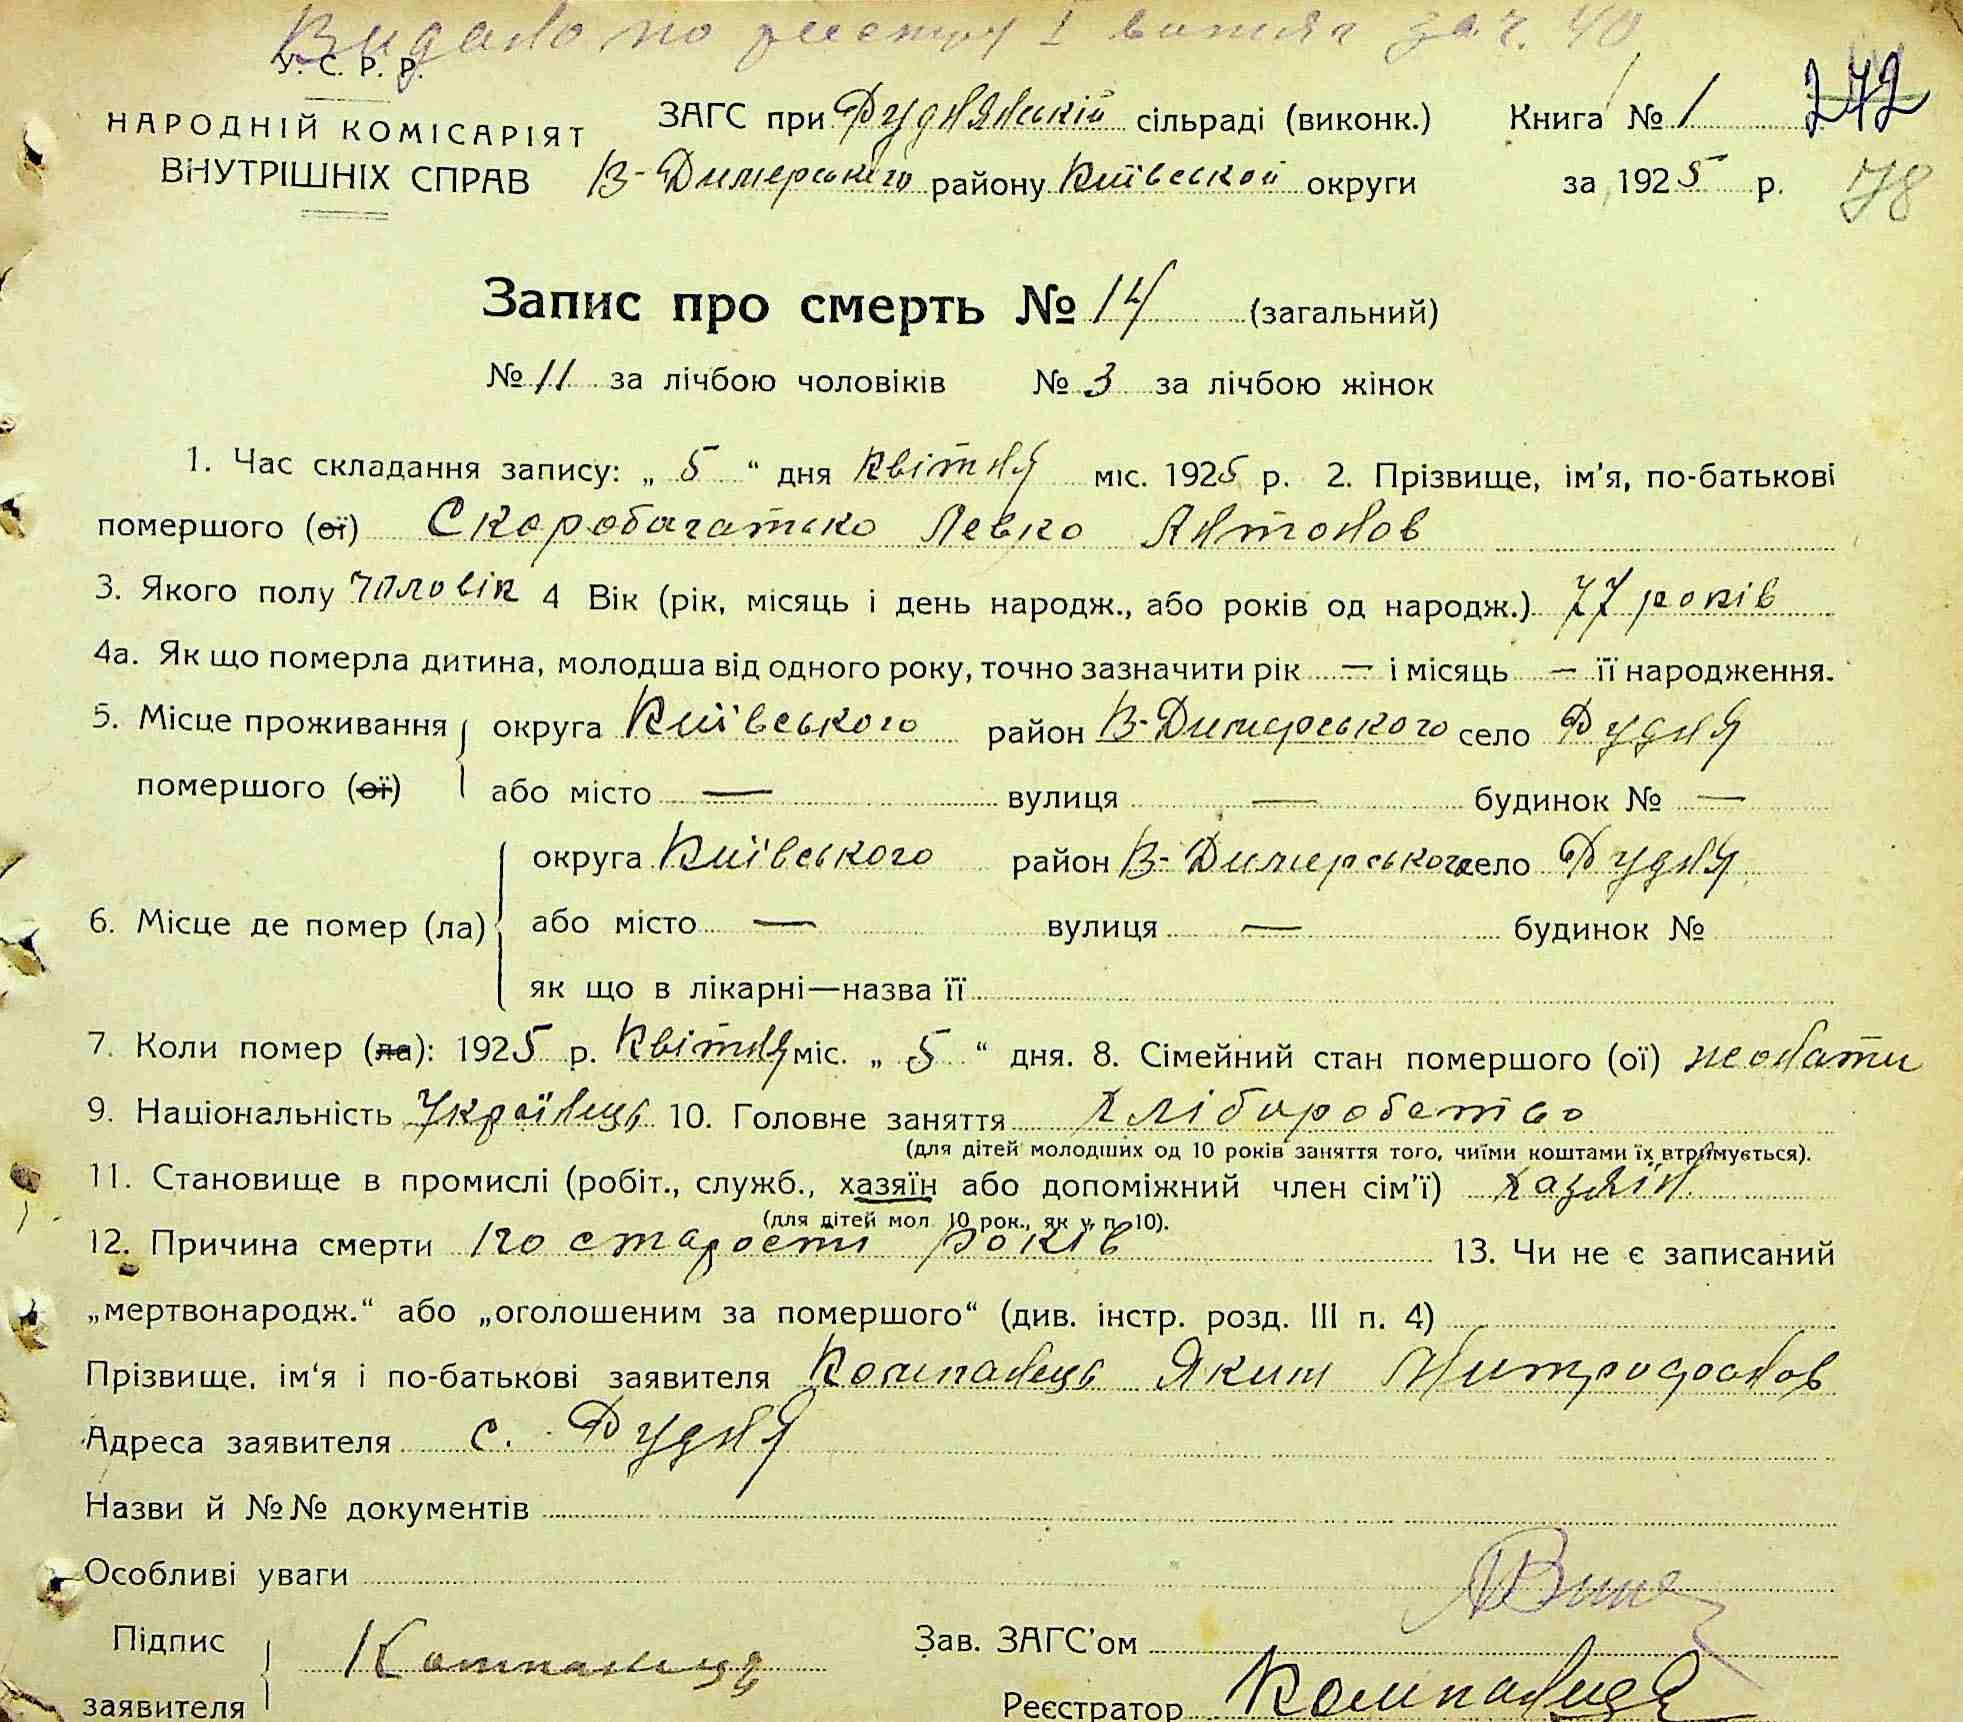 Видано по реєстру І витяг за ч. 40
У. С. Р. Р.
НАРОДНІЙ КОМІСАРІЯТ
ВНУТРІШНІХ СПРАВ
ЗАГС при Руднянській сільраді (виконк.)
В-Димерського району Київської округи
Книга № 1 272
за 1925 р. 78
Запис про смерть № 14 (загальний)
№ 11 за лічбою чоловіків № 3 за лічбою жінок
1. Час складання запису: „ 5 “ дня Квітня міс. 1925 р. 2. Прізвище, ім'я, по-батькові
помершого (ої) Скоробагатько Левко Антонов
3. Якого полу чоловік 4 Вік (рік, місяць і день народж., або років од народж.) 77 років
4а. Як що померла дитина, молодша від одного року, точно зазначити рік — і місяць — її народження.
5. Місце проживання округа Київського район В-Димерського село Рудня
помершого (ої) або місто — вулиця — будинок № —
округа Київського район В-Димерського село Рудня
6. Місце де помер (ла) або місто — вулиця — будинок №
як що в лікарні—назва її
7. Коли помер (ла): 1925 р. Квітня міс. „ 5 “ дня. 8. Сімейний стан помершого (ої)
9. Національність Українець 10. Головне заняття Хліборобство
(для дітей молодших од 10 років заняття того, чиїми коштами їх втримується).
11. Становище в промислі (робіт., служб., хазяїн або допоміжний член сім'ї) Хазяїн
(для дітей мол. 10 рок., як у п. 10).
12. Причина смерти по старости років 13. Чи не є записаний
„мертвонародж.“ або „оголошеним за помершого“ (див. інстр. розд. III п. 4)
Прізвище, ім'я і по-батькові заявителя Компанець Яким Митрофанов
Адреса заявителя с. Рудня
Назви й №№ документів
Особливі уваги
Підпис Компанець Зав. ЗАГС'ом
заявителя Реєстратор Компанець